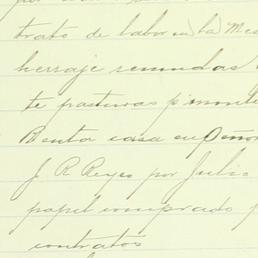 trato de labor en la Mes
herraje remudas
te pasturas p monta
Renta casa en
J R Reyes por Julio
papel comprado p
contratos